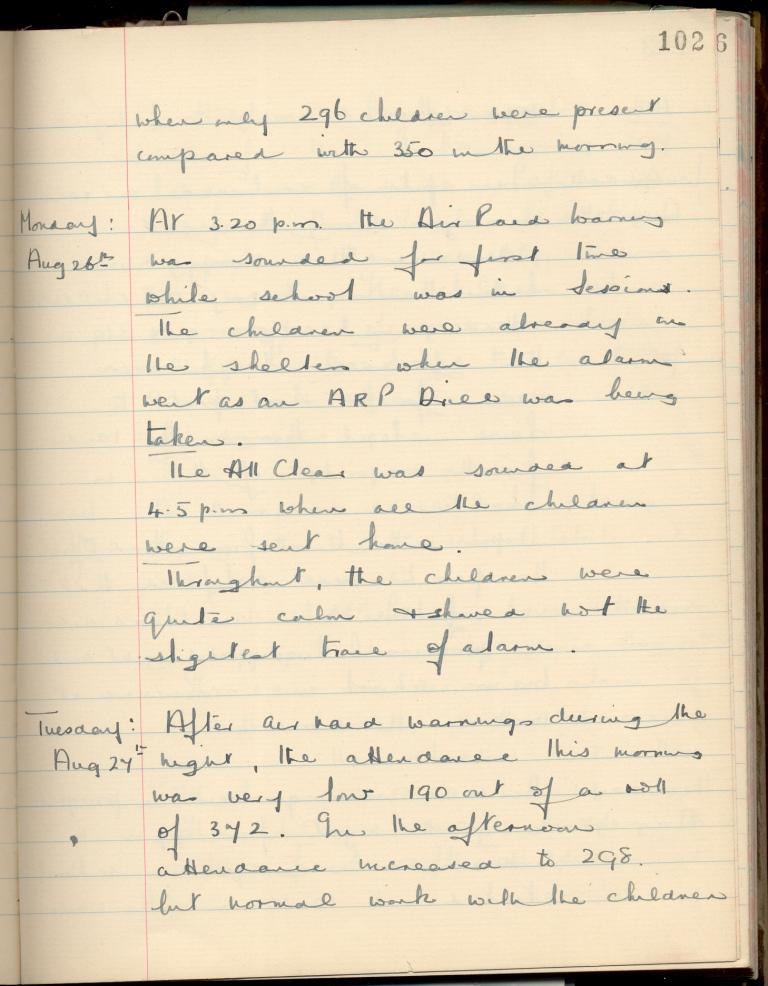 102 6
when only 296 children were present
compared with 350 in the morning.
Monday: At 3.20 p.m. the Air Raid Warning
Aug 26th was sounded for first time
while school was in session.
The children were already in
the shelters when the alarm
went as an ARP Drill was being
taken.
The All Clear was sounded at
4.5 p.m when all the children
were sent home.
Throughout, the children were
quite calm & showed not the
slightest trace of alarm.
Tuesday: After air raid warnings during the
Aug 27th night, the attendance this morning
was very low 190 out of a roll
of 372. In the afternoon
attendance increased to 298.
but normal work with the children